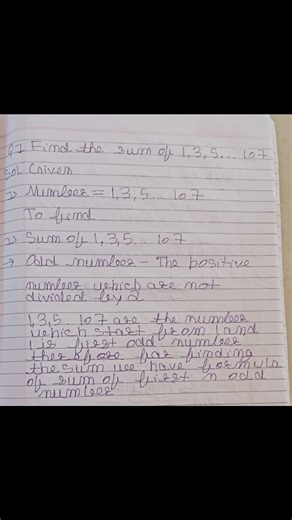 Q1 Find the sum of 1,3,5... 107
Sol Given
1) Number = 1,3,5... 107
To find
2) Sum of 1,3,5... 107
→ Odd number - The positive
number which are not
divided by 2
1,3,5.. 107 are the number
which start from 1 and
1 is first odd number
therefore for finding
the sum we have formula
of sum of first n odd
number